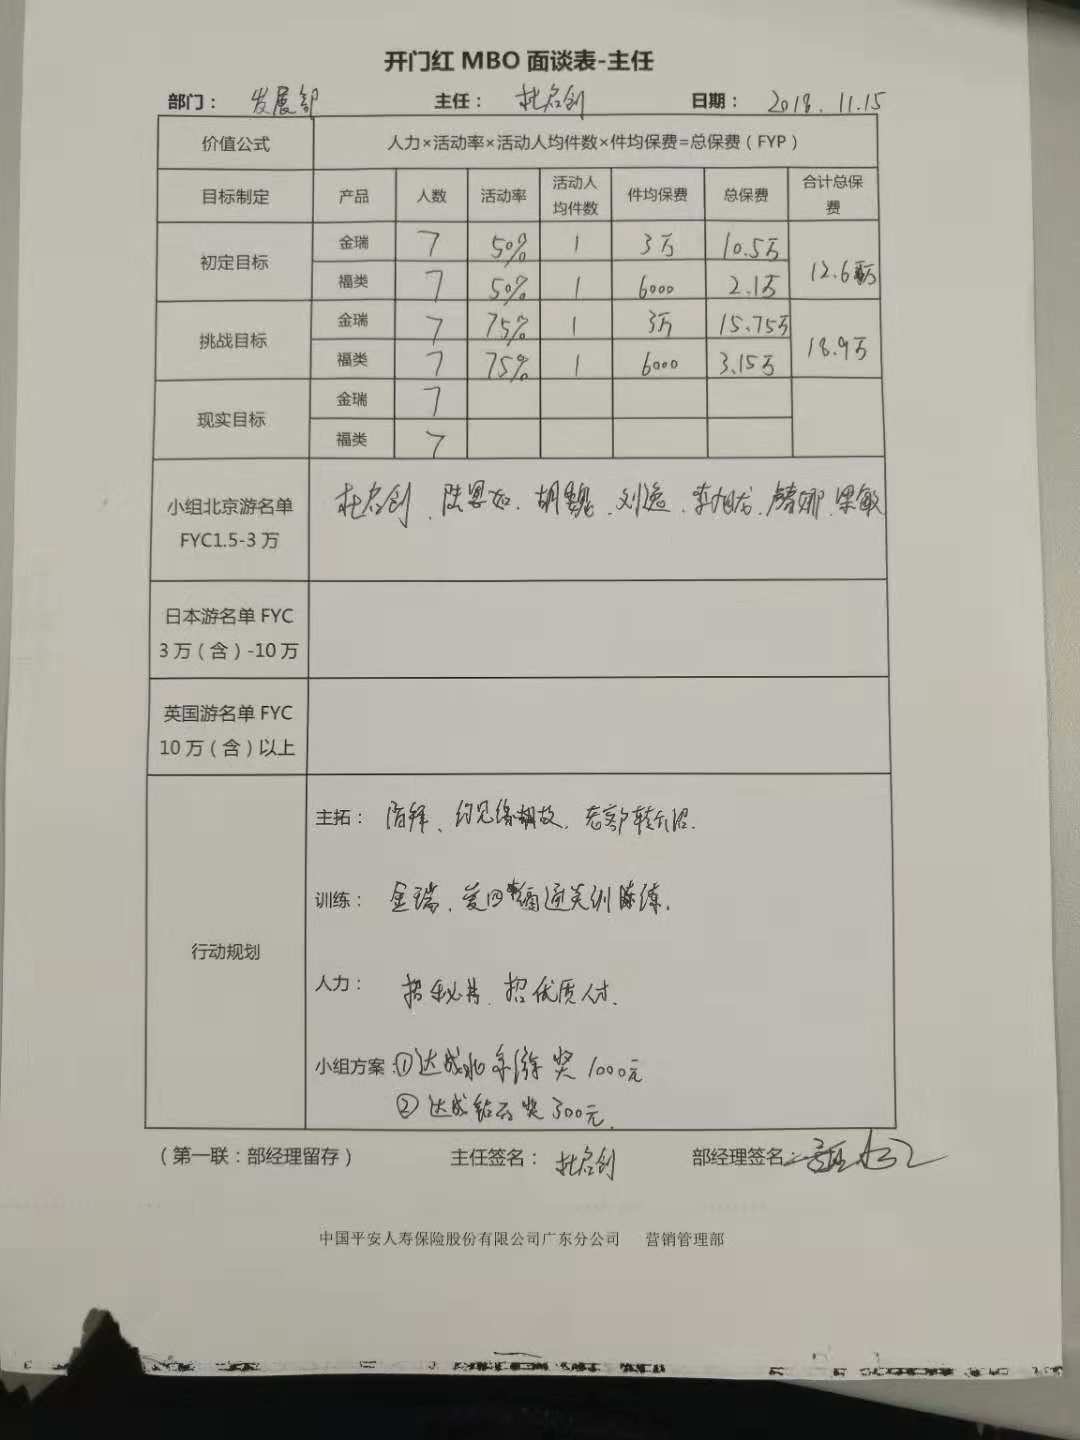 开门红 MBO 面谈表-主任
部门： 发展部 主任： 杜名创 日期： 2018.11.15
价值公式 人力×活动率×活动人均件数×件均保费=总保费（FYP）
目标制定 产品 人数 活动率 活动人均件数 件均保费 总保费 合计总保费
初定目标 金瑞 7 50% 1 3万 10.5万 12.6万
福类 7 50% 1 6000 2.1万
挑战目标 金瑞 7 75% 1 3万 15.75万 18.9万
福类 7 75% 1 6000 3.15万
现实目标 金瑞 7
福类 7
小组北京游名单 杜名创、陆思如、胡魏、刘逸、李旭龙、 娜、梁敏
FYC1.5-3 万
日本游名单 FYC
3 万（含）-10 万
英国游名单 FYC
10 万（含）以上
行动规划
主拓： 陌拜、约见缘故、老客户转介绍.
训练： 金瑞、 通关训练.
人力： 招秘书、招优质人才.
小组方案：①达成北京游 奖 1000元
②达成钻石 奖 300元.
（第一联：部经理留存） 主任签名： 杜名创 部经理签名：
中国平安人寿保险股份有限公司广东分公司 营销管理部